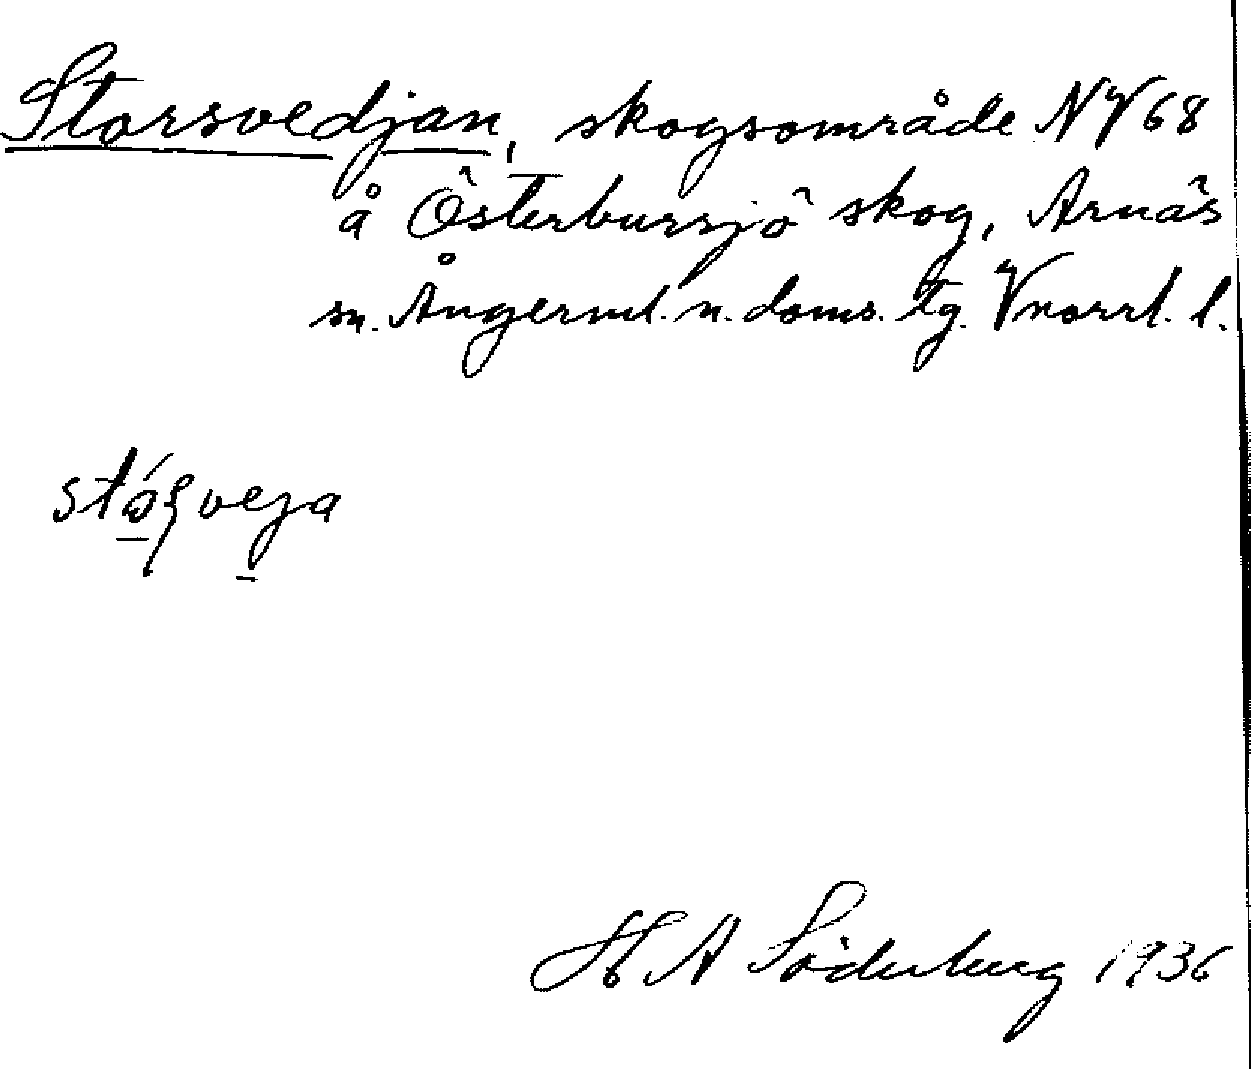 Storsvedjan, skogsområde NV 68
å Österbursjö skog, Arnäs
sn. Ångerml. n. doms. tg. Vnorrl. l.
H A Söderberg 1936